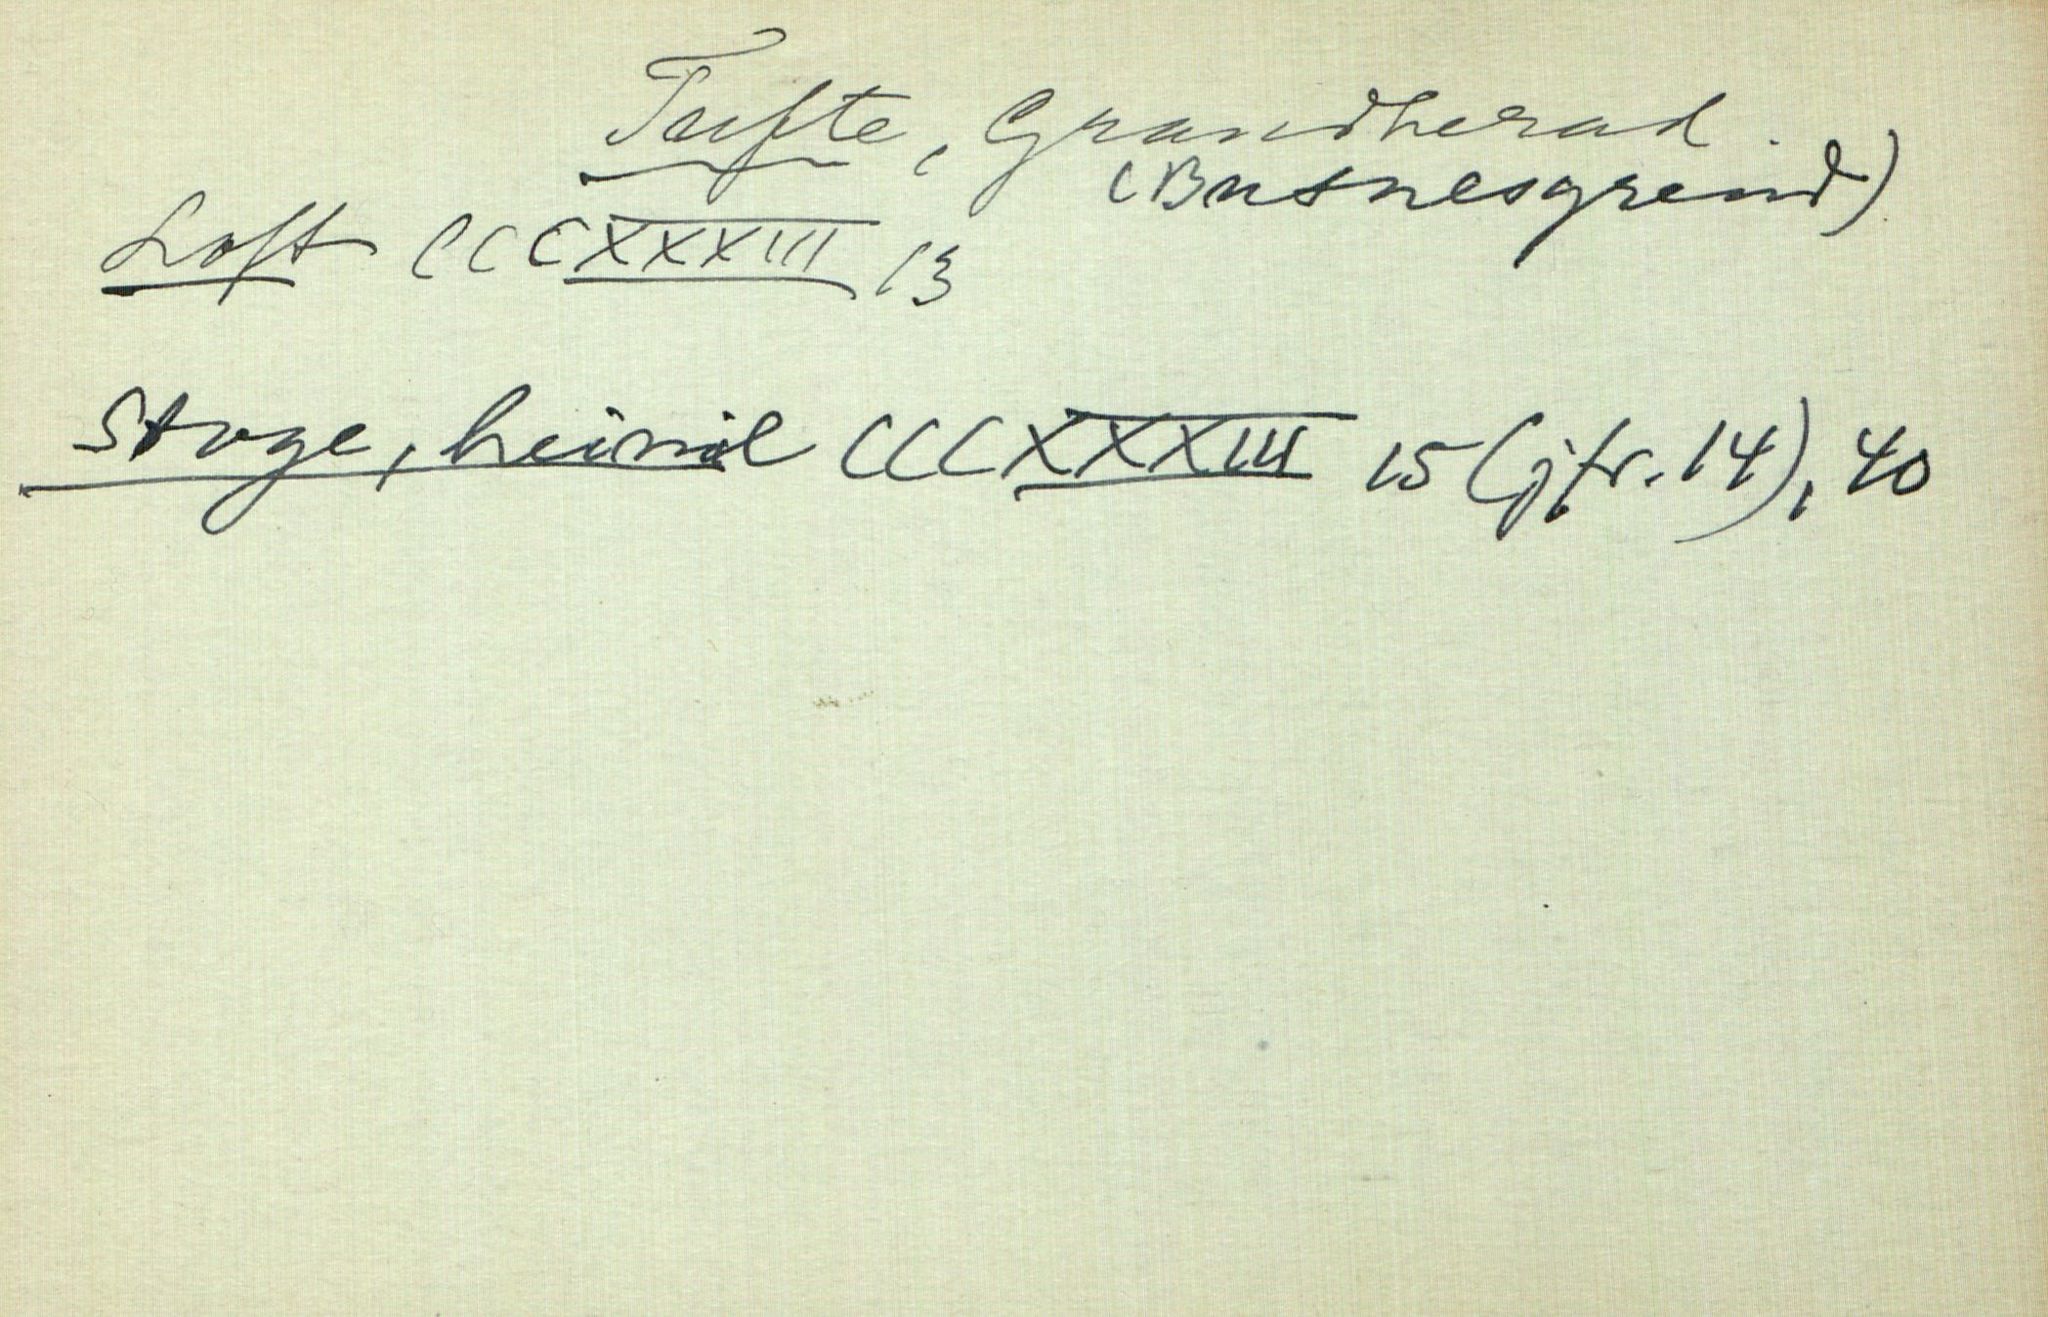 Tufte, Grandherad.
(Busnesgrend)
Loft CCCXXXIII 13
Stoge, heimil CCCXXXIII 15 (jfr. 14), 40